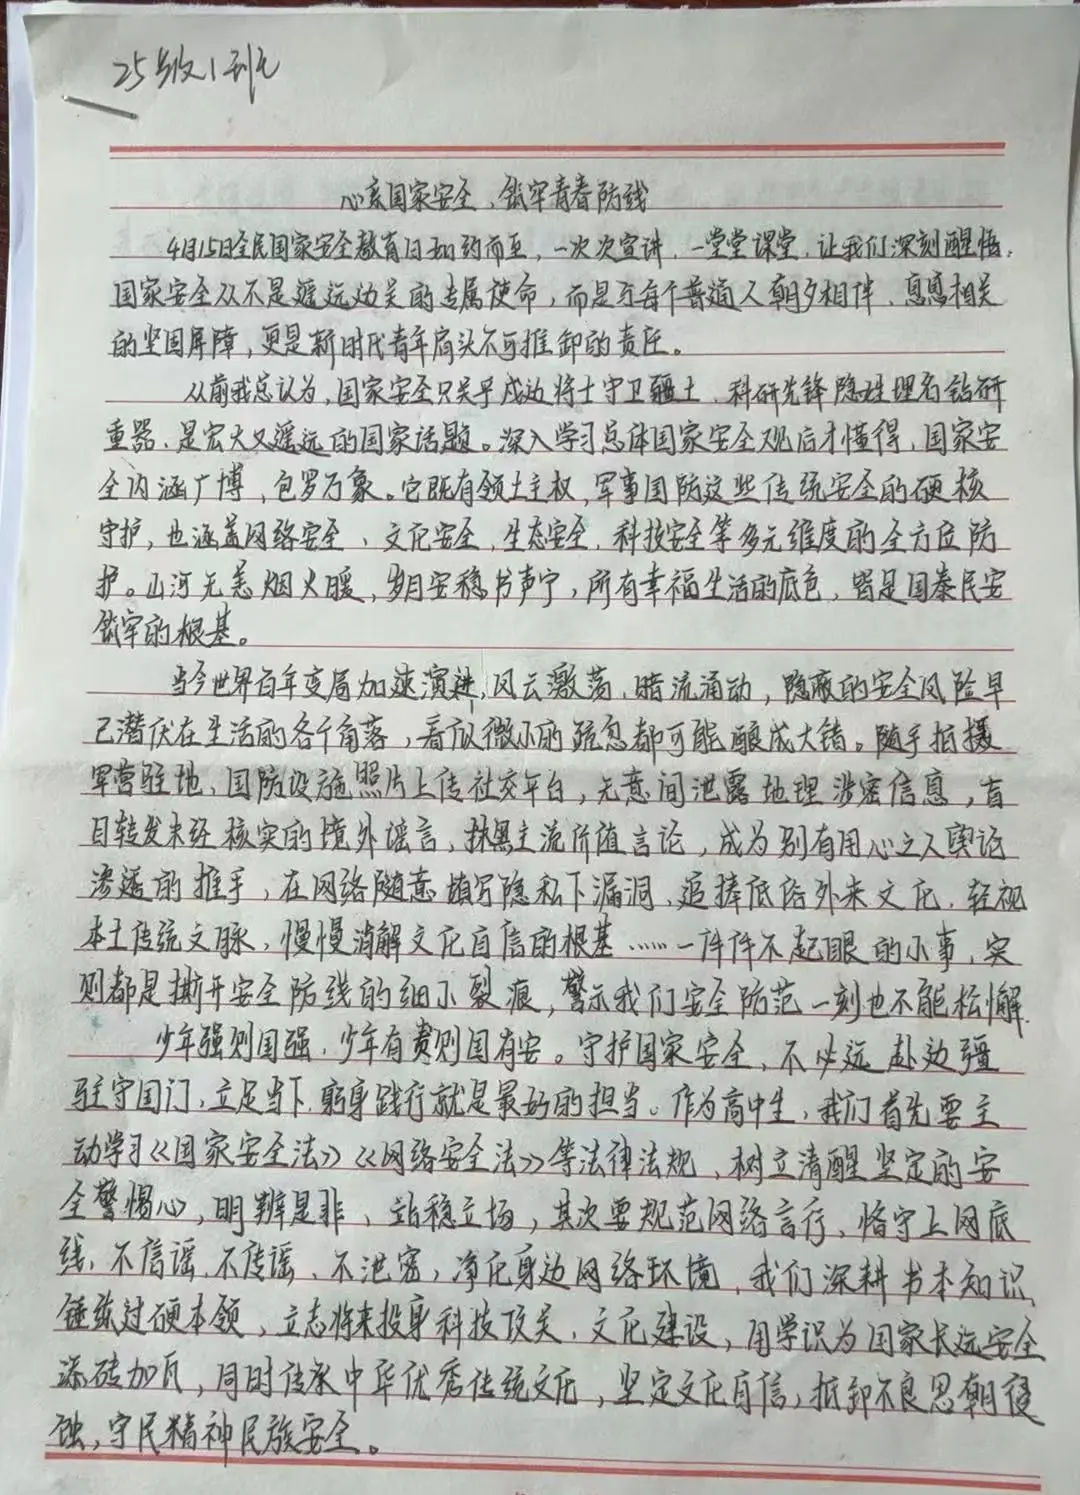 25级1班
心系国家安全、筑牢青春防线
4月15日全民国家安全教育日如约而至，一次次宣讲，一堂堂课堂，让我们深刻醒悟，
国家安全从不是遥远边关的专属使命，而是与每个普通人朝夕相伴，息息相关
的坚固屏障，更是新时代青年肩头不可推卸的责任。
从前我总认为，国家安全只关乎戍边将士守卫疆土，科研先锋隐姓埋名钻研
重器，是宏大又遥远的国家话题。深入学习总体国家安全观后才懂得，国家安
全内涵广博，包罗万象。它既有领土主权，军事国防这些传统安全的硬核
守护，也涵盖网络安全、文化安全，生态安全，科技安全等多元维度的全方位防
护。山河无恙烟火暖，岁月安稳书声宁，所有幸福生活的底色，皆是国泰民安
筑牢的根基。
当今世界百年变局加速演进，风云激荡，暗流涌动，隐蔽的安全风险早
已潜伏在生活的各个角落，看似微小的疏忽都可能酿成大错。随手拍摄
军营驻地、国防设施照片上传社交平台，无意间泄露地理涉密信息，盲
目转发未经核实的境外谣言，抹黑主流价值言论，成为别有用心之人舆论
渗透的推手，在网络随意填写隐私下漏洞，追捧低俗外来文化，轻视
本土传统文脉，慢慢消解文化自信的根基……一件件不起眼的小事，实
则都是撕开安全防线的细小裂痕，警示我们安全防范一刻也不能松懈.
少年强则国强，少年有责则国有安。守护国家安全，不必远赴边疆
驻守国门，立足当下，躬身践行就是最好的担当。作为高中生，我们首先要主
动学习《国家安全法》《网络安全法》等法律法规，树立清醒坚定的安
全警惕心，明辨是非、站稳立场，其次要规范网络言行，恪守上网底
线，不信谣，不传谣、不泄密，净化身边网络环境，我们深耕书本知识，
锤炼过硬本领，立志将来投身科技攻关，文化建设，用学识为国家长远安全
添砖加瓦，同时传承中华优秀传统文化，坚定文化自信，抵御不良思潮侵
蚀，守民精神民族安全。